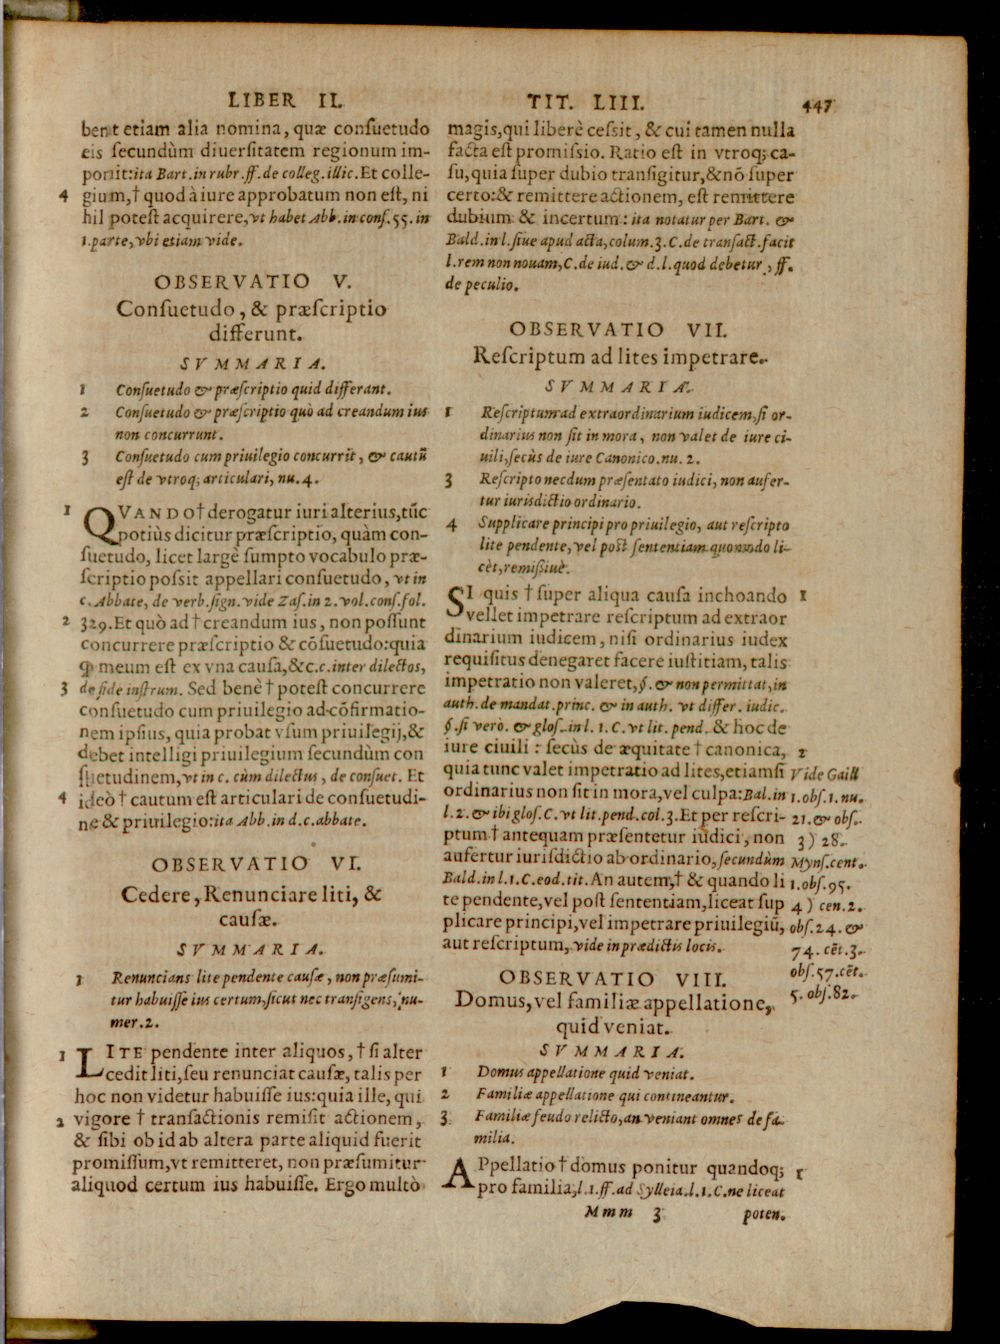 LIBER II. TIT. LIII. 447
bent etiam alia nomina, quæ consuetudo
eis secundùm diuersitatem regionum im-
ponit: ita Bart. in rubr. ff. de colleg. illic. Et colle-
4 gium, † quod à iure approbatum non est, ni
hil potest acquirere, vt habet Abb. in cons. 55. in
1. parte, vbi etiam vide.
OBSERVATIO V.
Consuetudo, & præscriptio
differunt.
SVMMARIA.
1 Consuetudo & præscriptio quid differant.
2 Consuetudo & præscriptio quò ad creandum ius
non concurrunt.
3 Consuetudo cum priuilegio concurrit, & cautũ
est de vtroq; articulari, nu. 4.
1 QVANDO † derogatur iuri alterius, tũc
potiùs dicitur præscriptio, quàm con-
suetudo, licet largè sumpto vocabulo præ-
scriptio possit appellari consuetudo, vt in
c. Abbate, de verb. sign. vide Zas. in 2. vol. cons. fol.
2 329. Et quò ad † creandum ius, non possunt
concurrere præscriptio & cõsuetudo: quia
ꝙ meum est ex vna causa, &c. c. inter dilectos,
3 de fide instrum. Sed benè † potest concurrere
consuetudo cum priuilegio ad cõfirmatio-
nem ipsius, quia probat vsum priuilegij, &
debet intelligi priuilegium secundùm con
suetudinem, vt in c. cùm dilectus, de consuet. Et
4 ideò † cautum est articulari de consuetudi-
ne & priuilegio: ita Abb. in d. c. abbate.
OBSERVATIO VI.
Cedere, Renunciare liti, &
causæ.
SVMMARIA.
1 Renuncians lite pendente causæ, non præsumi-
tur habuisse ius certum, sicut nec transigens, nu-
mer. 2.
1 LITE pendente inter aliquos, † si alter
cedit liti, seu renunciat causæ, talis per
hoc non videtur habuisse ius: quia ille, qui
2 vigore † transactionis remisit actionem,
& sibi ob id ab altera parte aliquid fuerit
promissum, vt remitteret, non præsumitur
aliquod certum ius habuisse. Ergo multò
magis, qui liberè cessit, & cui tamen nulla
facta est promissio. Ratio est in vtroq; ca-
su, quia super dubio transigitur, & nõ super
certo: & remittere actionem, est remittere
dubium & incertum: ita notatur per Bart. &
Bald. in l. siue apud acta, colum. 3. C. de transact. facit
l. rem non nouam, C. de iud. & d. l. quod debetur, ff.
de peculio.
OBSERVATIO VII.
Rescriptum ad lites impetrare.
SVMMARIA.
1 Rescriptum ad extraordinarium iudicem, si or-
dinarius non sit in mora, non valet de iure ci-
uili, secùs de iure Canonico. nu. 2.
3 Rescripto necdum præsentato iudici, non aufer-
tur iurisdictio ordinario.
4 Supplicare principi pro priuilegio, aut rescripto
lite pendente, vel post sententiam quomodo li-
cèt, remissiuè.
SI quis † super aliqua causa inchoando 1
vellet impetrare rescriptum ad extraor
dinarium iudicem, nisi ordinarius iudex
requisitus denegaret facere iustitiam, talis
impetratio non valeret, §. & non permittat, in
auth. de mandat. princ. & in auth. vt differ. iudic.
§. si verò. & glos. in l. 1. C. vt lit. pend. & hoc de
iure ciuili: secùs de æquitate † canonica, 2
quia tunc valet impetratio ad lites, etiamsi
ordinarius non sit in mora, vel culpa: Bal. in
l. 2. & ibi glos. C. vt lit. pend. col. 3. Et per rescri-
ptum † antequam præsentetur iudici, non
aufertur iurisdictio ab ordinario, secundùm
Bald. in l. 1. C. eod. tit. An autem, † & quando li
te pendente, vel post sententiam, liceat sup
plicare principi, vel impetrare priuilegiũ,
aut rescriptum, vide in prædictis locis.
Vide Gaill
1. obs. 1. nu.
21. & obs.
3) 28.
Myns. cent.
1. obs. 95.
4) cen. 2.
obs. 24. &
74. cẽt. 3.
obs. 57. cẽt.
5. obs. 82.
OBSERVATIO VIII.
Domus, vel familiæ appellatione,
quid veniat.
SVMMARIA.
1 Domus appellatione quid veniat.
2 Familiæ appellatione qui contineantur.
3 Familiæ feudo relicto, an veniant omnes de fa-
milia.
APpellatio † domus ponitur quandoq; 1
pro familia, l. 1. ff. ad Sylleia. l. 1. C. ne liceat
Mmm 3 poten.